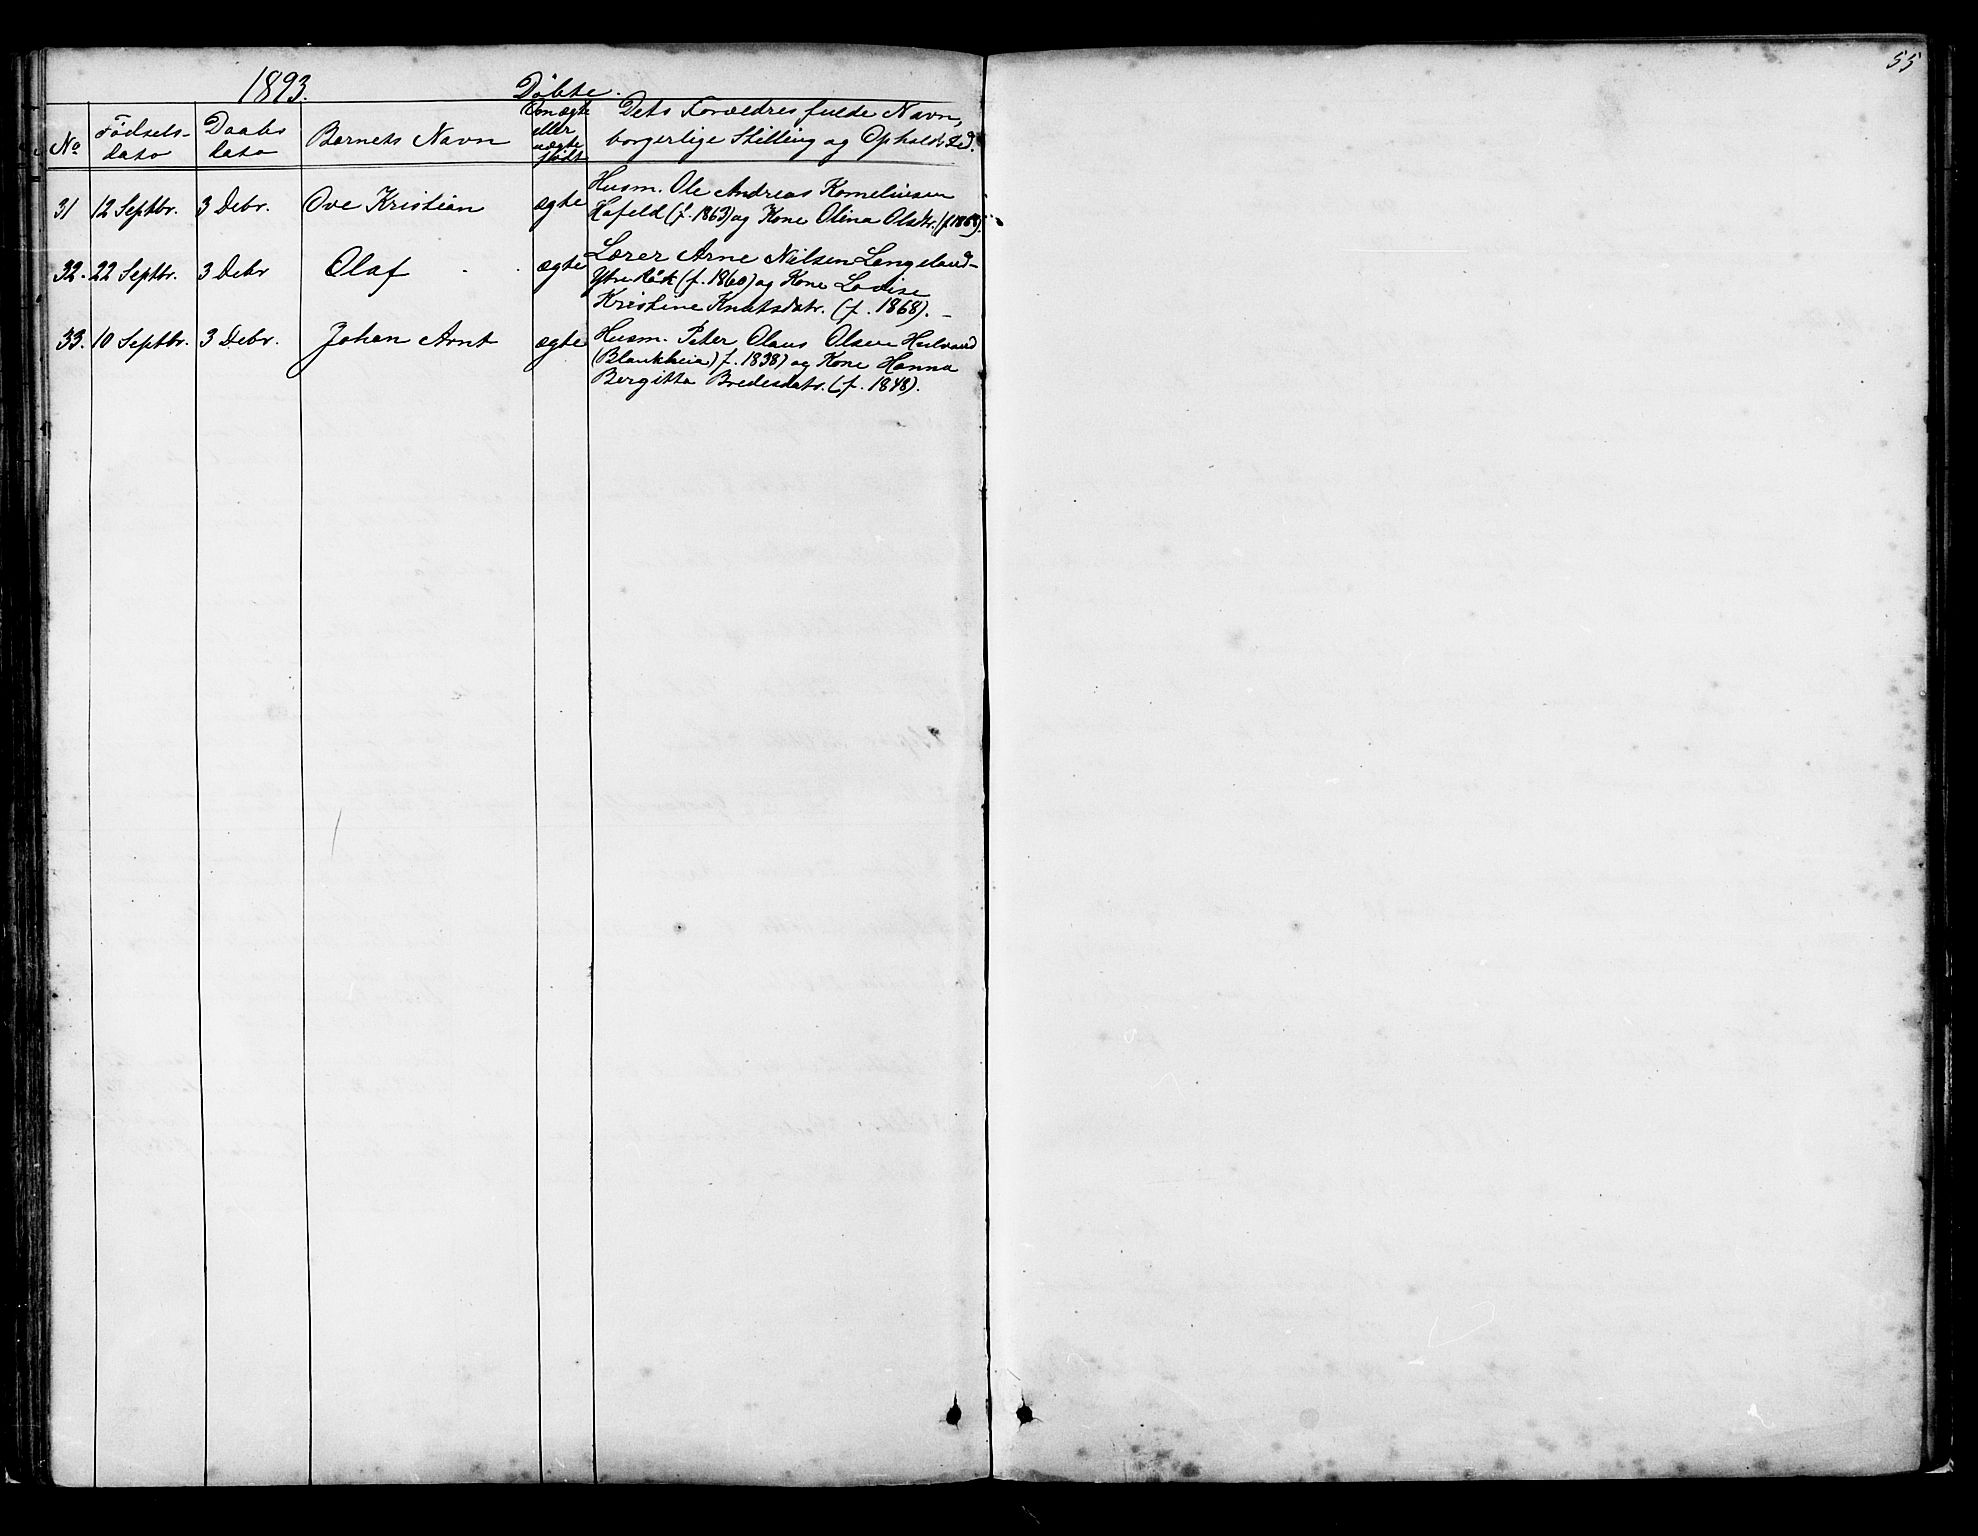 55
1893. Döbte.
No Födsels-dato Daabs dato Barnets Navn Om ægte eller uægte födt Dets Forældres fulde Navn, borgerlige Stilling og Opholdssted.
31 12 Septbr. 3 Debr. Ove Kristian ægte Husm. Ole Andreas Korneliusen
Hafeld (f. 1863) og Kone Olina Olsdtr. (f. 1868).
32. 22 Septbr. 3 Debr Olaf ægte Lærer Arne Nilsen Langeland-
Ytre Råk (f. 1860) og Kone Lovise
Kristine Knutsdatr. (f. 1868).
33. 10 Septbr. 3 Debr. Johan Arnt ægte Husm. Peter Olaus Olsen
(Blankheia) f. 1838) og Kone Hanna
Bergitta Bredesdatr. (f. 1848).